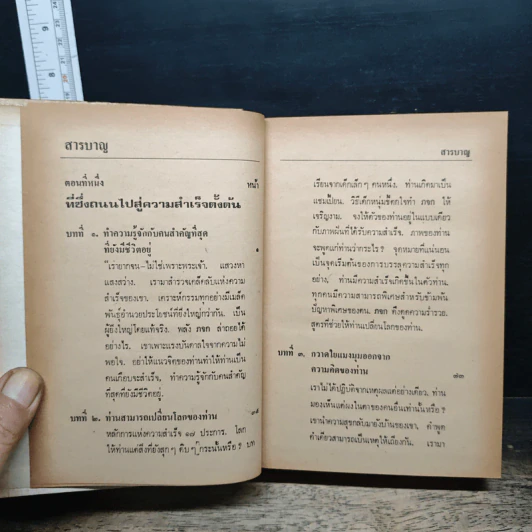 สารบาญ
ตอนที่หนึ่ง หน้า
ที่ซึ่งถนนไปสู่ความสำเร็จตั้งต้น
บทที่ ๑. ทำความรู้จักกับคนสำคัญที่สุด
ที่ยังมีชีวิตอยู่ ๑
"เรายากจน–ไม่ใช่เพราะพระเจ้า. แสวงหา
แสงสว่าง. เรามาสำรวจเคล็ดลับแห่งความ
สำเร็จของเขา. เคราะห์กรรมทุกอย่างมีเมล็ด
พันธุ์อำนวยประโยชน์ที่ยิ่งใหญ่กว่ากัน. เป็น
ผู้ยิ่งใหญ่โดยแท้จริง. พลัง ภจก ล่าถอยได้
อย่างไร. เขาเพราะแรงบันดาลใจจากความไม่
พอใจ. อย่าให้แนวจิตของท่านทำให้ท่านเป็น
คนเกือบจะสำเร็จ. ทำความรู้จักกับคนสำคัญ
ที่สุดที่ยังมีชีวิตอยู่.
บทที่ ๒. ท่านสามารถเปลี่ยนโลกของท่าน
หลักการแห่งความสำเร็จ ๑๗ ประการ. โลก
ให้ท่านแต่สิ่งที่ยังสุก ๆ ดิบ ๆ กระนั้นหรือ ? บท
สารบาญ
เรียนจากเด็กเล็ก ๆ คนหนึ่ง. ท่านเกิดมาเป็น
แชมเปี้ยน. วิธีเด็กหนุ่มขี้ตกใจทำ ภจก ให้
เจริญงาม. จงให้ตัวของท่านอยู่ในแบบเดียว
กับภาพพิมพ์ที่ได้รับความสำเร็จ. ภาพของท่าน
จะพูดแก่ท่านว่ากระไร ? จุดหมายที่แน่นอน
เป็นจุดเริ่มต้นของการบรรลุความสำเร็จทุก
อย่าง. ท่านมีความสำเร็จเกิดขึ้นในตัวท่าน.
ทุกคนมีความสามารถพิเศษสำหรับข้ามพ้น
ปัญหาพิเศษของตน. ภจก ดึงดูดความร่ำรวย.
สูตรที่ช่วยให้ท่านเปลี่ยนโลกของท่าน.
บทที่ ๓. กวาดใยแมงมุมออกจาก
ความคิดของท่าน ๔๓
เราไม่ได้ปฏิบัติจากเหตุผลแต่อย่างเดียว. ท่าน
มองเห็นแต่ผงในตาของคนอื่นเท่านั้นหรือ ?
เขานำความสุขกลับมายังบ้านของเขา. คำพูด
คำเดียวสามารถเป็นเหตุให้เถียงกัน. เรามา